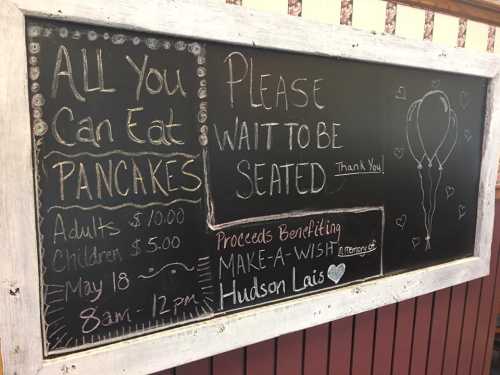 All You
Can Eat
PANCAKES
Adults $10.00
Children $5.00
May 18
8am - 12pm
PLEASE
WAIT TO BE
SEATED Thank You
Proceeds Benefiting
MAKE-A-WISH in memory of
Hudson Lais